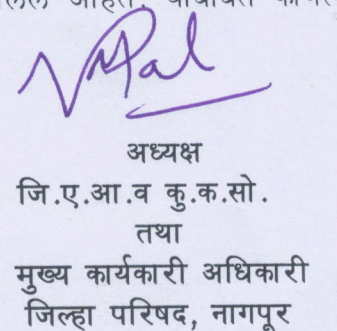 अध्यक्ष
जि.ए.आ.व कु.क.सो.
तथा
मुख्य कार्यकारी अधिकारी
जिल्हा परिषद, नागपूर